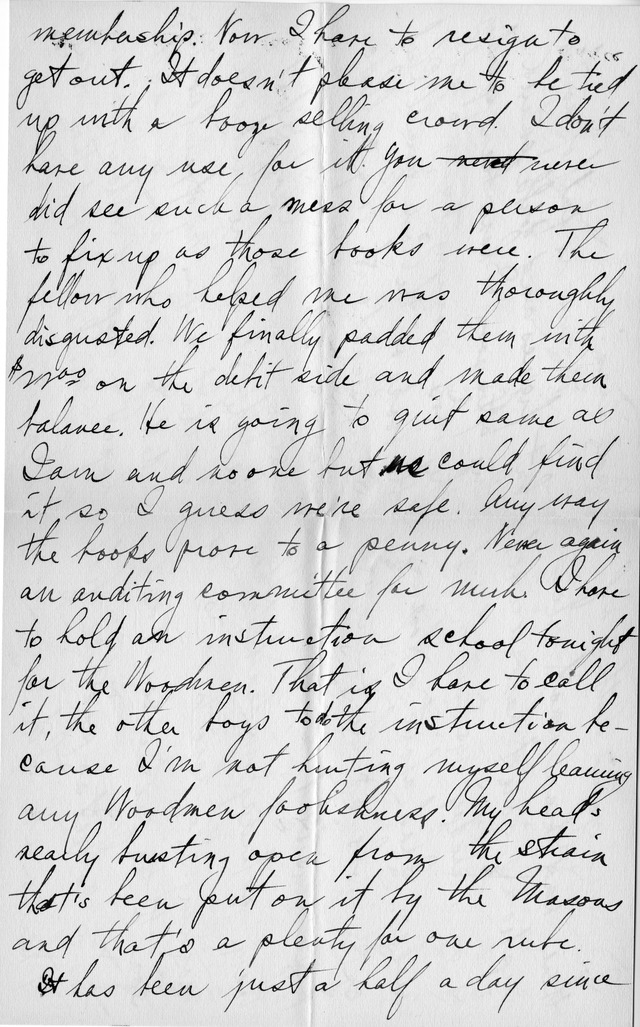 membership. Now I have to resign to
get out. It doesn't please me to be tied
up with a booze selling crowd. I don't
have any use for it. You need never
did see such a mess for a person
to fix up as those books were. The
fellow who helped me was thoroughly
disgusted. We finally padded them with
on the debit side and made them
balance. He is going to quit same as
I am and no one but us could find
it so I guess we're safe. Anyway
the books prove to a penny. Never again
an auditing committee for much. I have
to hold an instruction school tonight
for the Woodmen. That is I have to call
it, the other boys to do the instruction be-
cause I'm not hurting myself learning
any Woodmen foolishness. My head's
nearly busting open from the strain
that's been put on it by the Masons
and that's a plenty for one rube.
It has been just a half a day since